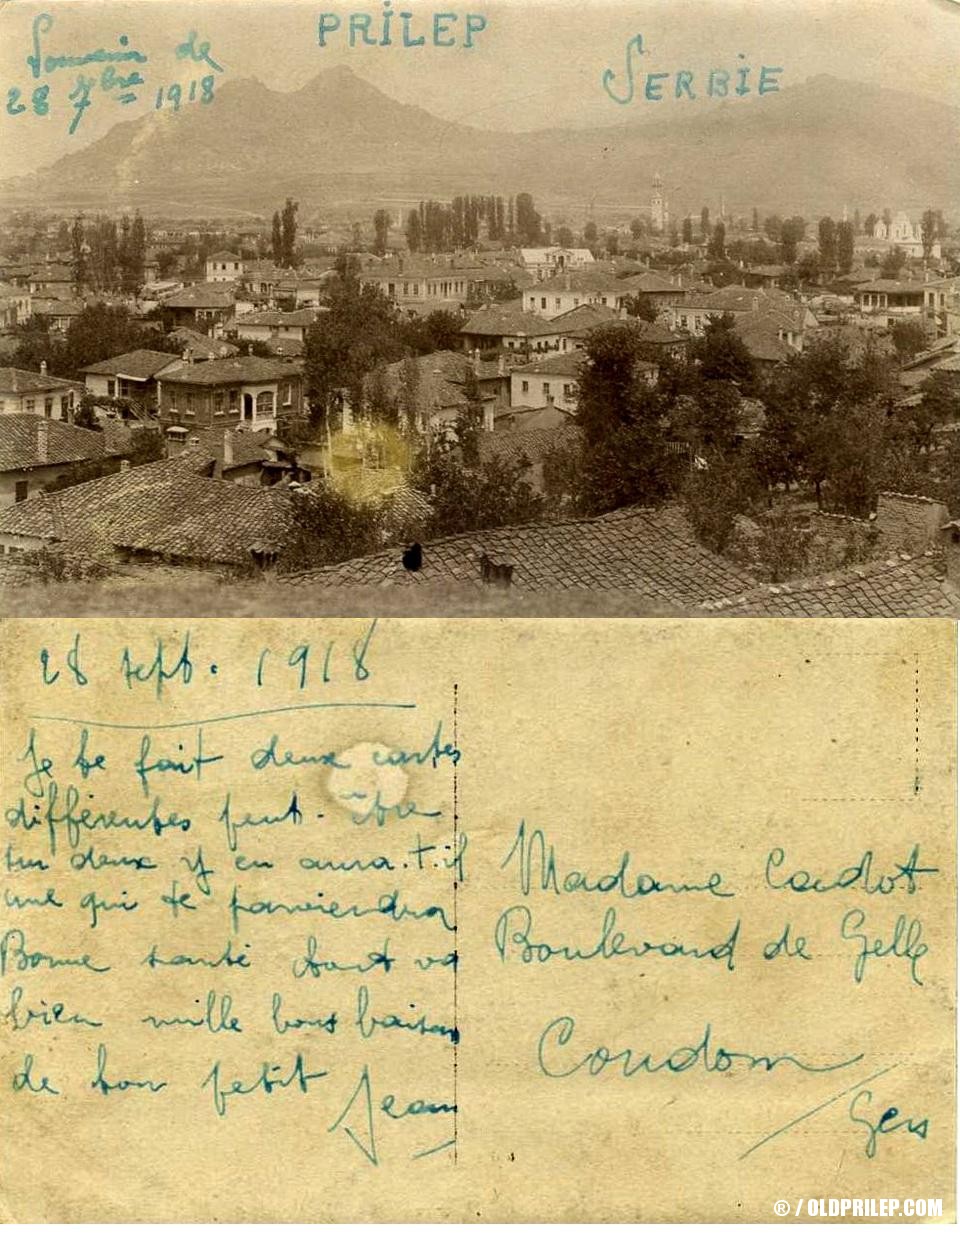 PRILEP
Souvenir de
28 7bre 1918
SERBIE
28 sept. 1918
Je te fait deux cartes
différentes peut-être
sur deux y en aura.t.il
une qui te parviendra
Bonne santé tout va
bien mille bons baisers
de ton petit
Jean
Madame Cadot
Boulevard de Gelle
Condom
Gers
® / OLDPRILEP.COM